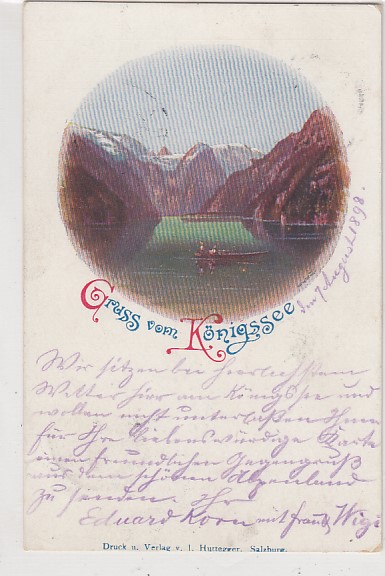 Gruss vom Königssee
den 7 August 1898.
Wir sitzen bei herrlichstem
Wetter hier am Königssee und
wollen nicht unterlaßen Ihnen
für Ihre liebenswürdige Karte
einen freundlichen Gegengruß
aus dem schönen Alpenland
zu senden. Ihr
Eduard Korn mit Frau
Druck u. Verlag v. I. Huttegger, Salzburg.